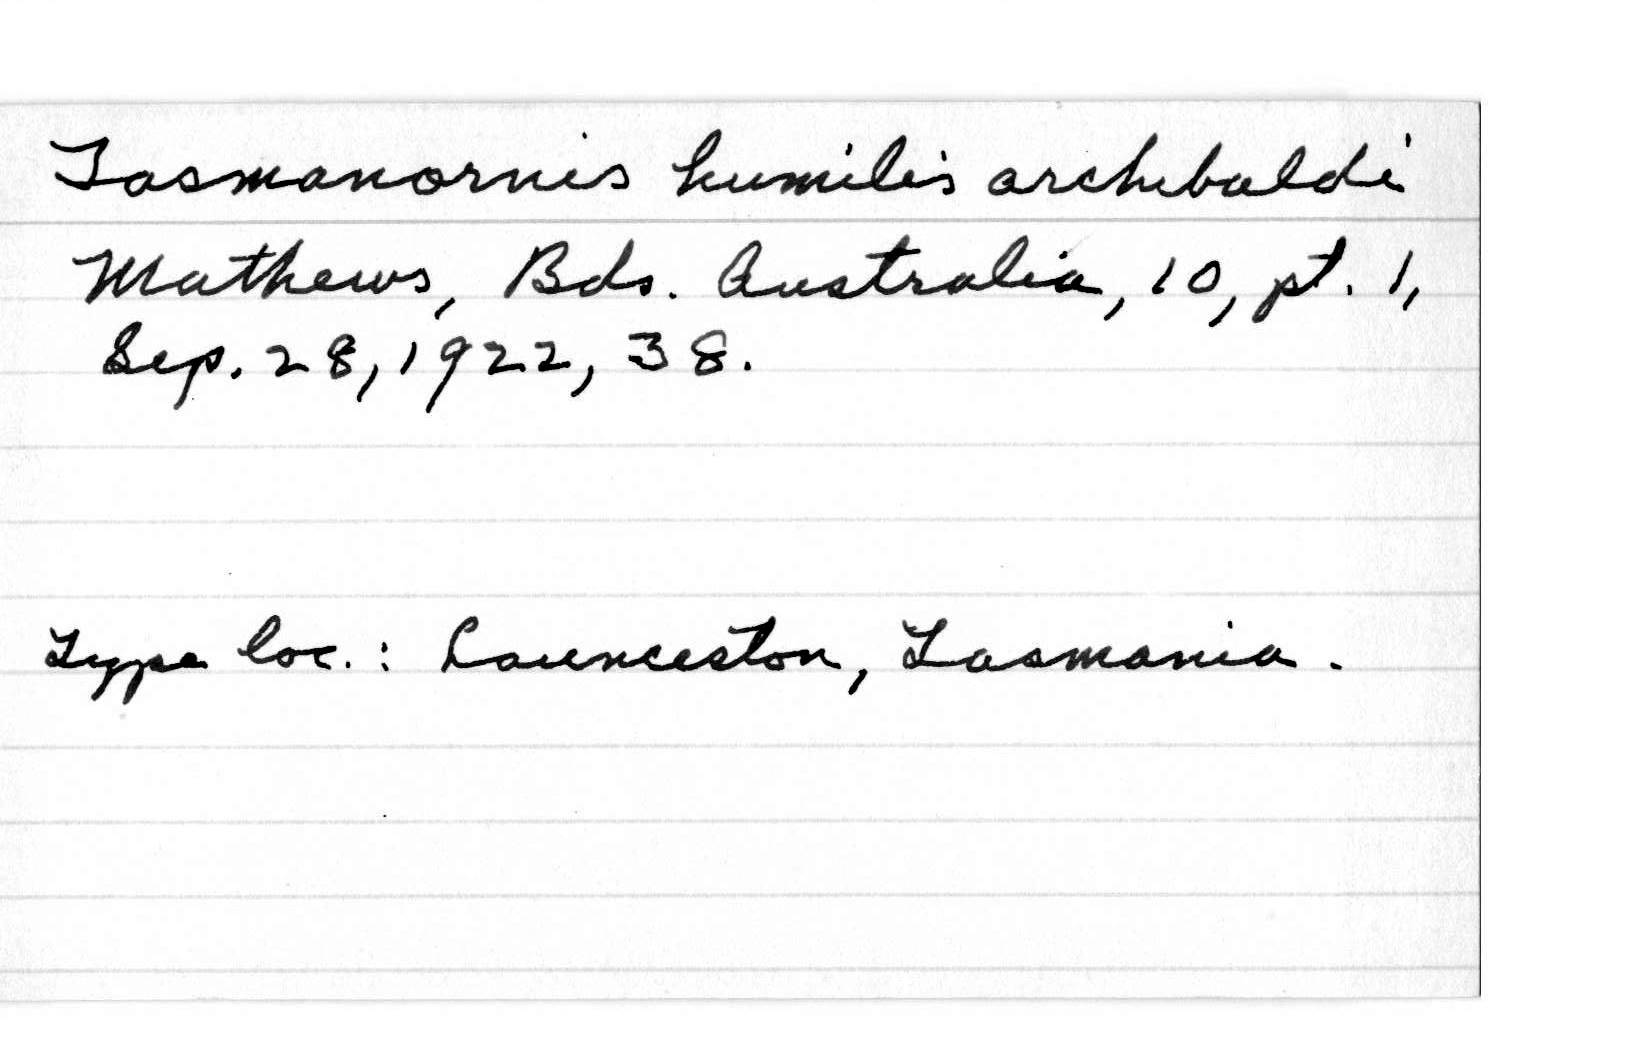 Tasmanornis humilis archibaldi
Mathews, Bds. Australia, 10, pt. 1,
Sep. 28, 1922, 38.
Type loc. : Launceston, Tasmania.